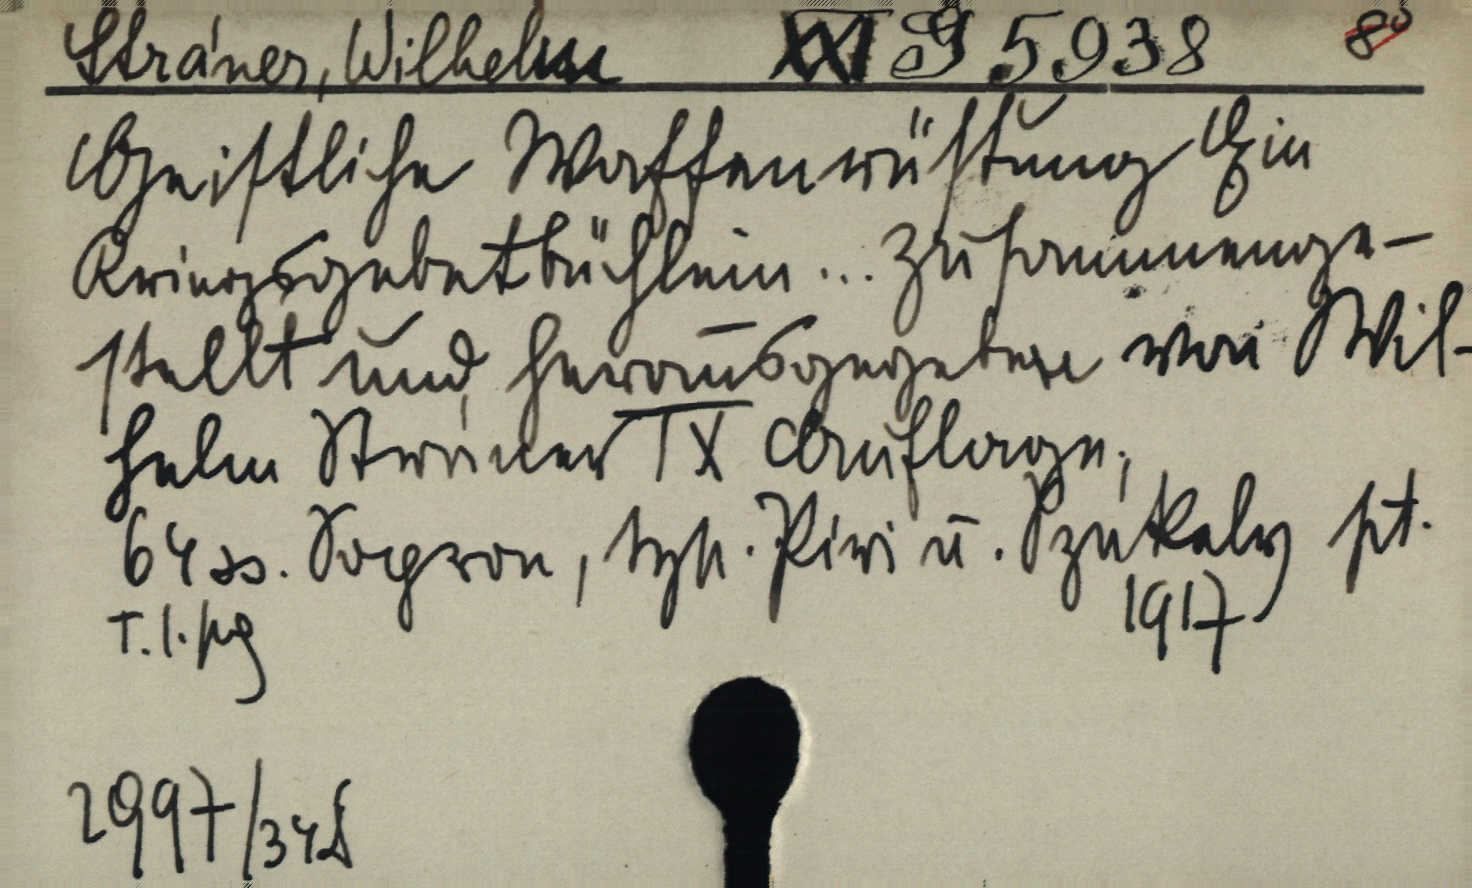 Stráner, Wilhelm XXI G 5938 8°
Geistliche Waffenrüstung Ein
Kriegsgebetbüchlein ... zusammenge-
stellt und herausgegeben von Wil-
helm Stráner IX Auflage;
64 ss. Sopron, typ. Piri u. Székely pt.
T. 1. pg 1917
2997/34